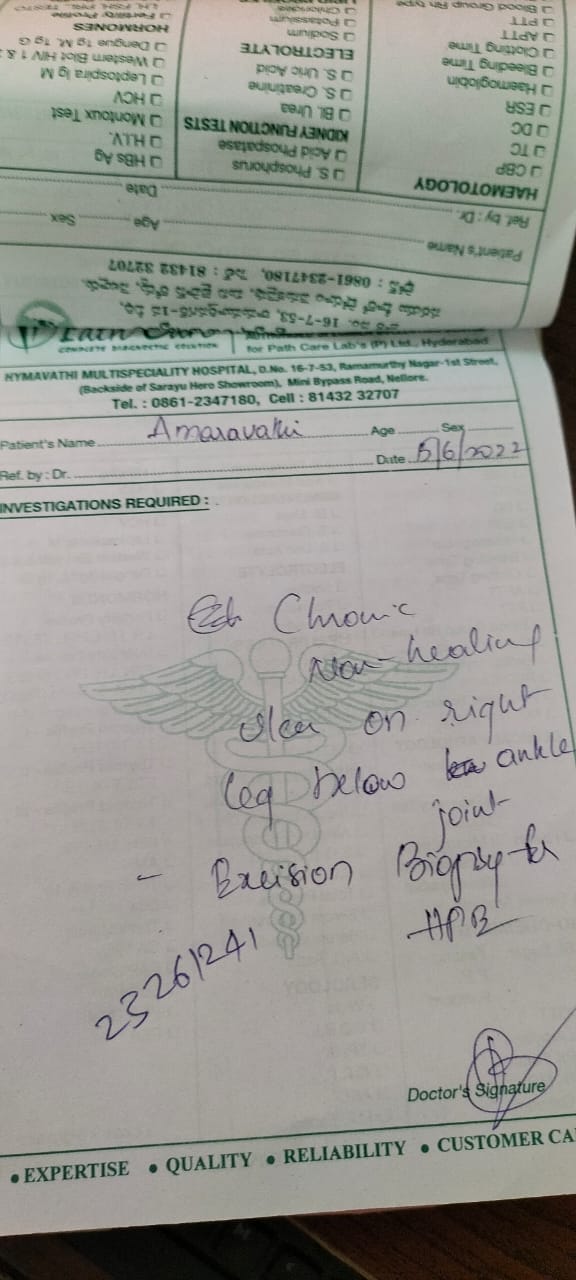 HAEMOTOLOGY
☐ CBP
☐ TC
☐ DC
☐ ESR
☐ Haemoglobin
☐ Bleeding Time
☐ Clotting Time
☐ APTT
☐ PTT
☐ Blood Group Rh Type
☐ S. Phosphorus
☐ Acid Phospatase
KIDNEY FUNCTION TESTS
☐ Bl. Urea
☐ S. Creatinine
☐ S. Uric Acid
ELECTROLYTE
☐ Sodium
☐ Potassium
☐ Chlorides
☐ HBs Ag
☐ H.I.V.
☐ Montoux Test
☐ HCV
☐ Leptospira Ig M
☐ Western Blot HIV 1 &
☐ Dengue Tg M, Tg G
HORMONES
☐ Fertility Profile
Patient's Name
Age
Sex
Ref. by : Dr.
Date
0861-2347180, 81432 32707
COMPLETE DIAGNOSTIC SOLUTION
for Path Care Lab's (P) Ltd., Hyderabad
HYMAVATHI MULTISPECIALITY HOSPITAL, D.No. 16-7-53, Ramamurthy Nagar-1st Street,
(Backside of Sarayu Hero Showroom), Mini Bypass Road, Nellore.
Tel. : 0861-2347180, Cell : 81432 32707
Patient's Name Amaravathi Age Sex
Ref. by : Dr. Date 5/6/2022
INVESTIGATIONS REQUIRED :
Chronic
Non-healing
ulcer on right
leg below ankle
joint
- Excision Biopsy for
HPE
23261241
Doctor's Signature
• EXPERTISE • QUALITY • RELIABILITY • CUSTOMER CA